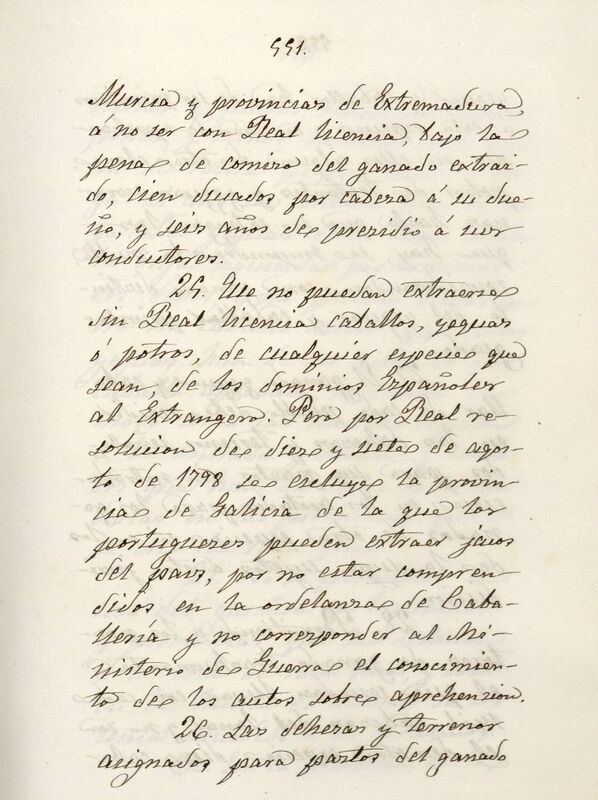 551.
Murcia y provincias de Extremadura,
á no ser con Real licencia, bajo la
pena de comiso del ganado extrai-
do, cien ducados por cabeza á su due-
ño, y seis años de presidio á sus
conductores.
25. Que no puedan extraerse
sin Real licencia caballos, yeguas
ó potros, de cualquier especie que
sean, de los dominios Españoles
al Extrangero. Pero por Real re-
solucion de diez y siete de agos-
to de 1798 se escluye la provin-
cia de Galicia de la que los
portugueses pueden extraer jacos
del pais, por no estar compren-
didos en la ordelanza de Caba-
llería y no corresponder al Mi-
nisterio de Guerra el conocimien-
to de los autos sobre aprehension.
26. Las dehesas y terrenos
asignados para pastos del ganado